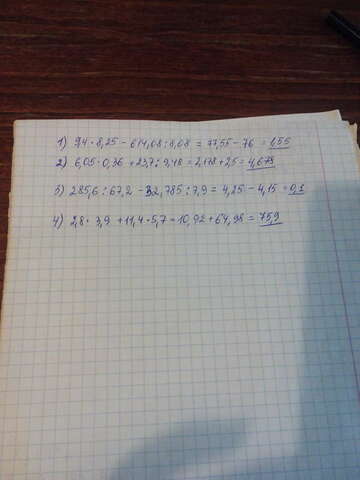 1) 9,4 · 8,25 − 614,08 : 8,08 = 77,55 − 76 = 1,55
2) 6,05 · 0,36 + 23,7 : 9,48 = 2,178 + 2,5 = 4,678
3) 285,6 : 67,2 − 32,785 : 7,9 = 4,25 − 4,15 = 0,1
4) 2,8 · 3,9 + 11,4 · 5,7 = 10,92 + 64,98 = 75,9